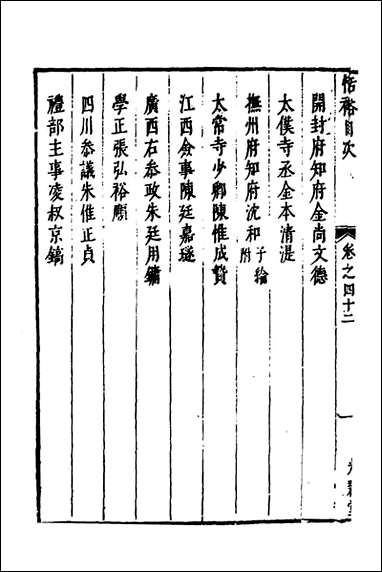 恬裕目次
卷之四十二
開封府知府金尚文德
太僕寺丞金本清湜
撫州府知府沈和附子綸
太常寺少卿陳惟成贄
江西僉事陳廷嘉璲
廣西右叅政朱廷用鏞
學正張弘裕順
四川叅議朱惟正貞
禮部主事凌叔京鎬